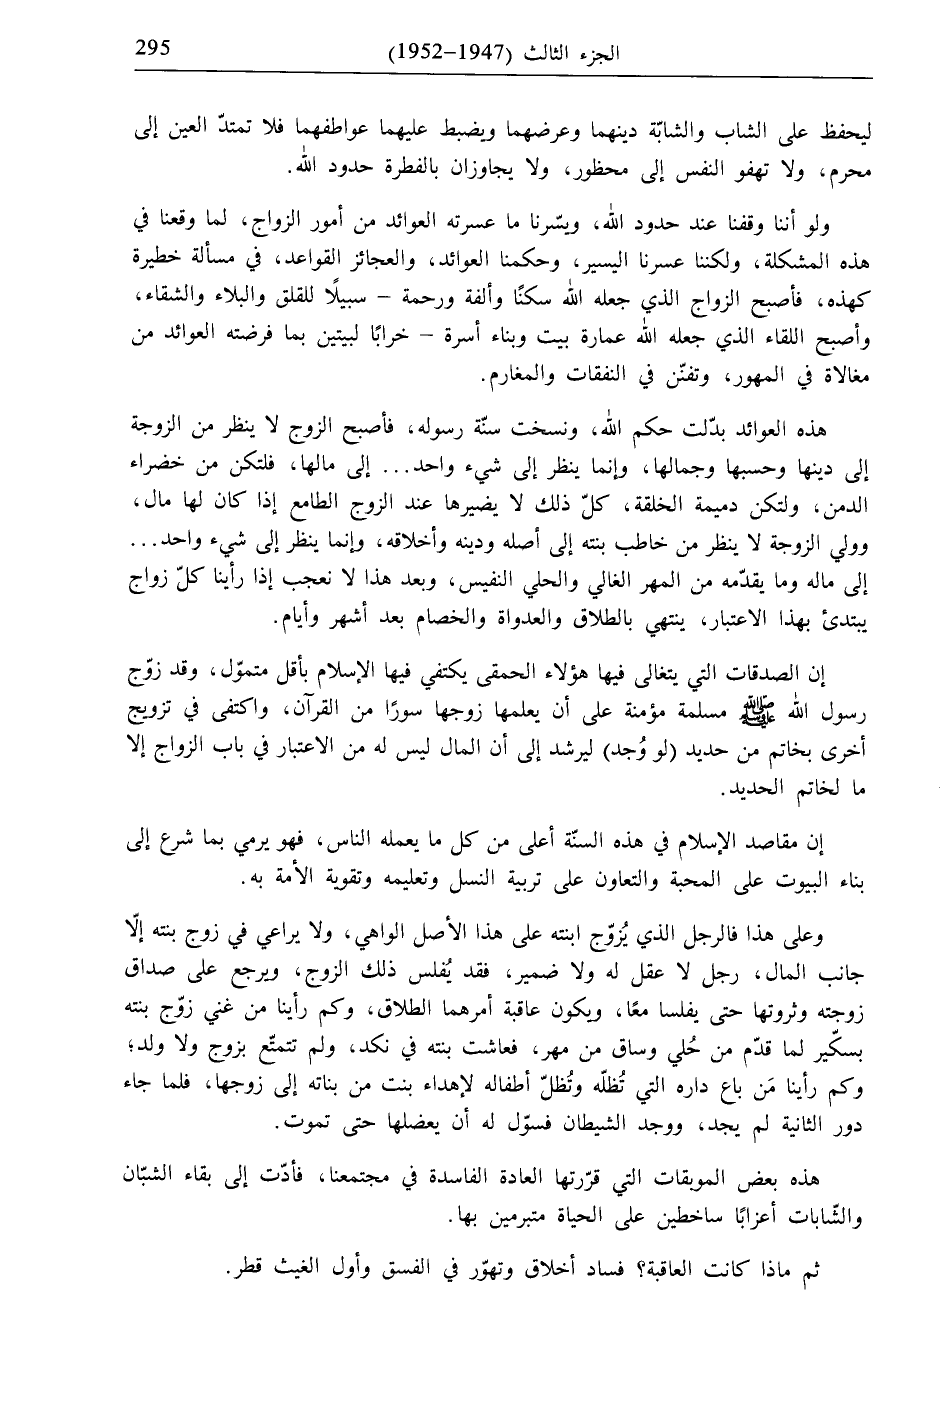 الجزء الثالث (1947–1952)
295
ليحفظ على الشاب والشابّة دينهما وعرضهما ويضبط عليهما عواطفهما فلا تمتدّ العين إلى
محرم، ولا تهفو النفس إلى محظور، ولا يجاوزان بالفطرة حدود الله.
ولو أننا وقفنا عند حدود الله، ويسّرنا ما عسرته العوائد من أمور الزواج، لما وقعنا في
هذه المشكلة، ولكننا عسرنا اليسير، وحكمنا العوائد، والعجائز القواعد، في مسألة خطيرة
كهذه، فأصبح الزواج الذي جعله الله سكنًا وألفة ورحمة – سبيلًا للقلق والبلاء والشقاء،
وأصبح اللقاء الذي جعله الله عمارة بيت وبناء أسرة – خرابًا لبيتين بما فرضته العوائد من
مغالاة في المهور، وتفنّن في النفقات والمغارم.
هذه العوائد بدّلت حكم الله، ونسخت سنّة رسوله، فأصبح الزوج لا ينظر من الزوجة
إلى دينها وحسبها وجمالها، وإنما ينظر إلى شيء واحد... إلى مالها، فلتكن من خضراء
الدمن، ولتكن دميمة الخلقة، كلّ ذلك لا يضيرها عند الزوج الطامع إذا كان لها مال،
وولي الزوجة لا ينظر من خاطب بنته إلى أصله ودينه وأخلاقه، وإنما ينظر إلى شيء واحد...
إلى ماله وما يقدّمه من المهر الغالي والحلي النفيس، وبعد هذا لا نعجب إذا رأينا كلّ زواج
يبتدئ بهذا الاعتبار، ينتهي بالطلاق والعدواة والخصام بعد أشهر وأيام.
إن الصدقات التي يتغالى فيها هؤلاء الحمقى يكتفي فيها الإسلام بأقل متموّل، وقد زوّج
رسول الله ﷺ مسلمة مؤمنة على أن يعلمها زوجها سورًا من القرآن، واكتفى في تزويج
أخرى بخاتم من حديد (لو وُجد) ليرشد إلى أن المال ليس له من الاعتبار في باب الزواج إلا
ما لخاتم الحديد.
إن مقاصد الإسلام في هذه السنّة أعلى من كل ما يعمله الناس، فهو يرمي بما شرع إلى
بناء البيوت على المحبة والتعاون على تربية النسل وتعليمه وتقوية الأمة به.
وعلى هذا فالرجل الذي يُزوّج ابنته على هذا الأصل الواهي، ولا يراعي في زوج بنته إلّا
جانب المال، رجل لا عقل له ولا ضمير، فقد يُفلس ذلك الزوج، ويرجع على صداق
زوجته وثروتها حتى يفلسا معًا، ويكون عاقبة أمرهما الطلاق، وكم رأينا من غني زوّج بنته
بسكّير لما قدّم من حُلي وساق من مهر، فعاشت بنته في نكد، ولم تتمتّع بزوج ولا ولد؛
وكم رأينا مَن باع داره التي تُظلّه وتُظلّ أطفاله لإهداء بنت من بناته إلى زوجها، فلما جاء
دور الثانية لم يجد، ووجد الشيطان فسوّل له أن يعضلها حتى تموت.
هذه بعض الموبقات التي قرّرتها العادة الفاسدة في مجتمعنا، فأدّت إلى بقاء الشبّان
والشّابات أعزابًا ساخطين على الحياة متبرمين بها.
ثم ماذا كانت العاقبة؟ فساد أخلاق وتهوّر في الفسق وأول الغيث قطر.